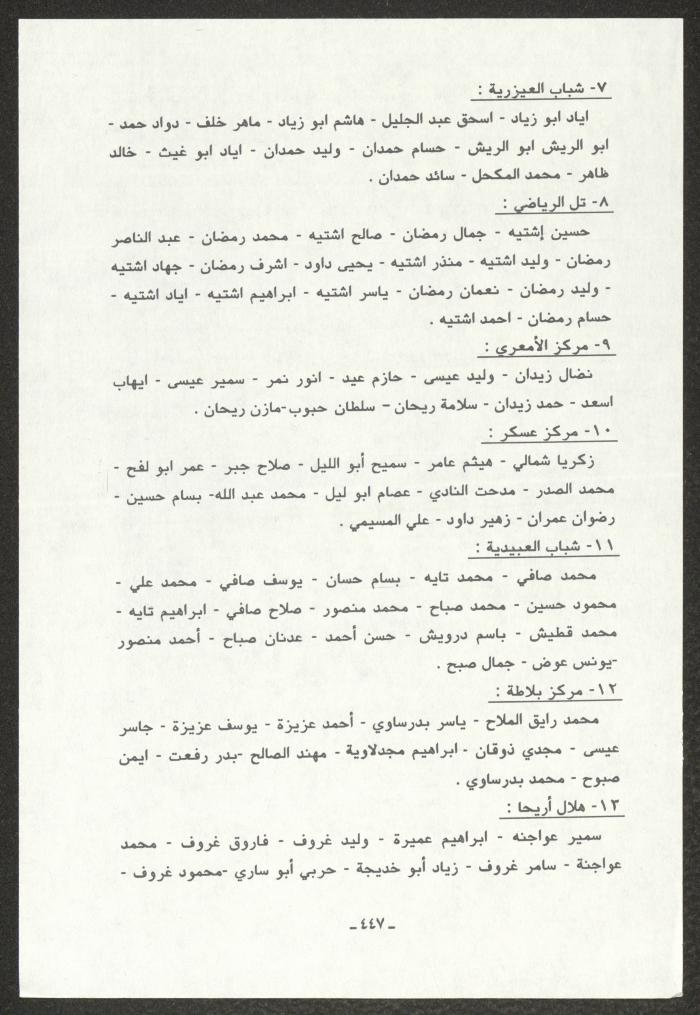 ٧- شباب العيزرية :
اياد ابو زياد - اسحق عبد الجليل - هاشم ابو زياد - ماهر خلف - دواد حمد -
ابو الريش ابو الريش - حسام حمدان - وليد حمدان - اياد ابو غيث - خالد
ظاهر - محمد المكحل - سائد حمدان .
٨- تل الرياضي :
حسين إشتيه - جمال رمضان - صالح اشتيه - محمد رمضان - عبد الناصر
رمضان - وليد اشتيه - منذر اشتيه - يحيى داود - اشرف رمضان - جهاد اشتيه
- وليد رمضان - نعمان رمضان - ياسر اشتيه - ابراهيم اشتيه - اياد اشتيه -
حسام رمضان - احمد اشتيه .
٩- مركز الأمعري :
نضال زيدان - وليد عيسى - حازم عيد - انور نمر - سمير عيسى - ايهاب
اسعد - حمد زيدان - سلامة ريحان – سلطان حبوب-مازن ريحان .
١٠- مركز عسكر :
زكريا شمالي - هيثم عامر - سميح أبو الليل - صلاح جبر - عمر ابو لفح -
محمد الصدر - مدحت النادي - عصام ابو ليل - محمد عبد الله- بسام حسين -
رضوان عمران - زهير داود - علي المسيمي .
١١- شباب العبيدية :
محمد صافي - محمد تايه - بسام حسان - يوسف صافي - محمد علي -
محمود حسين - محمد صباح - محمد منصور - صلاح صافي - ابراهيم تايه -
محمد قطيش - باسم درويش - حسن أحمد - عدنان صباح - أحمد منصور
-يونس عوض - جمال صبح .
١٢- مركز بلاطة :
محمد رايق الملاح - ياسر بدرساوي - أحمد عزيزة - يوسف عزيزة - جاسر
عيسى - مجدي ذوقان - ابراهيم مجدلاوية - مهند الصالح -بدر رفعت - ايمن
صبوح - محمد بدرساوي .
١٣- هلال أريحا :
سمير عواجنه - ابراهيم عميرة - وليد غروف - فاروق غروف - محمد
عواجنة - سامر غروف - زياد أبو خديجة - حربي أبو ساري -محمود غروف -
ـ ٤٤٧ ـ